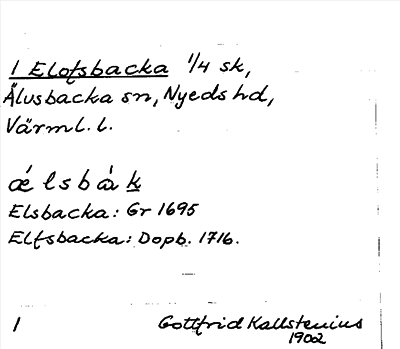 1 Elofsbacka 1/4 sk,
Älvsbacka sn, Nyeds hd,
Värml. l.
ǽlsbàk
Elsbacka: Gr 1695
Elfsbacka: Dopb. 1716.
1 Gottfrid Kallstenius
1902